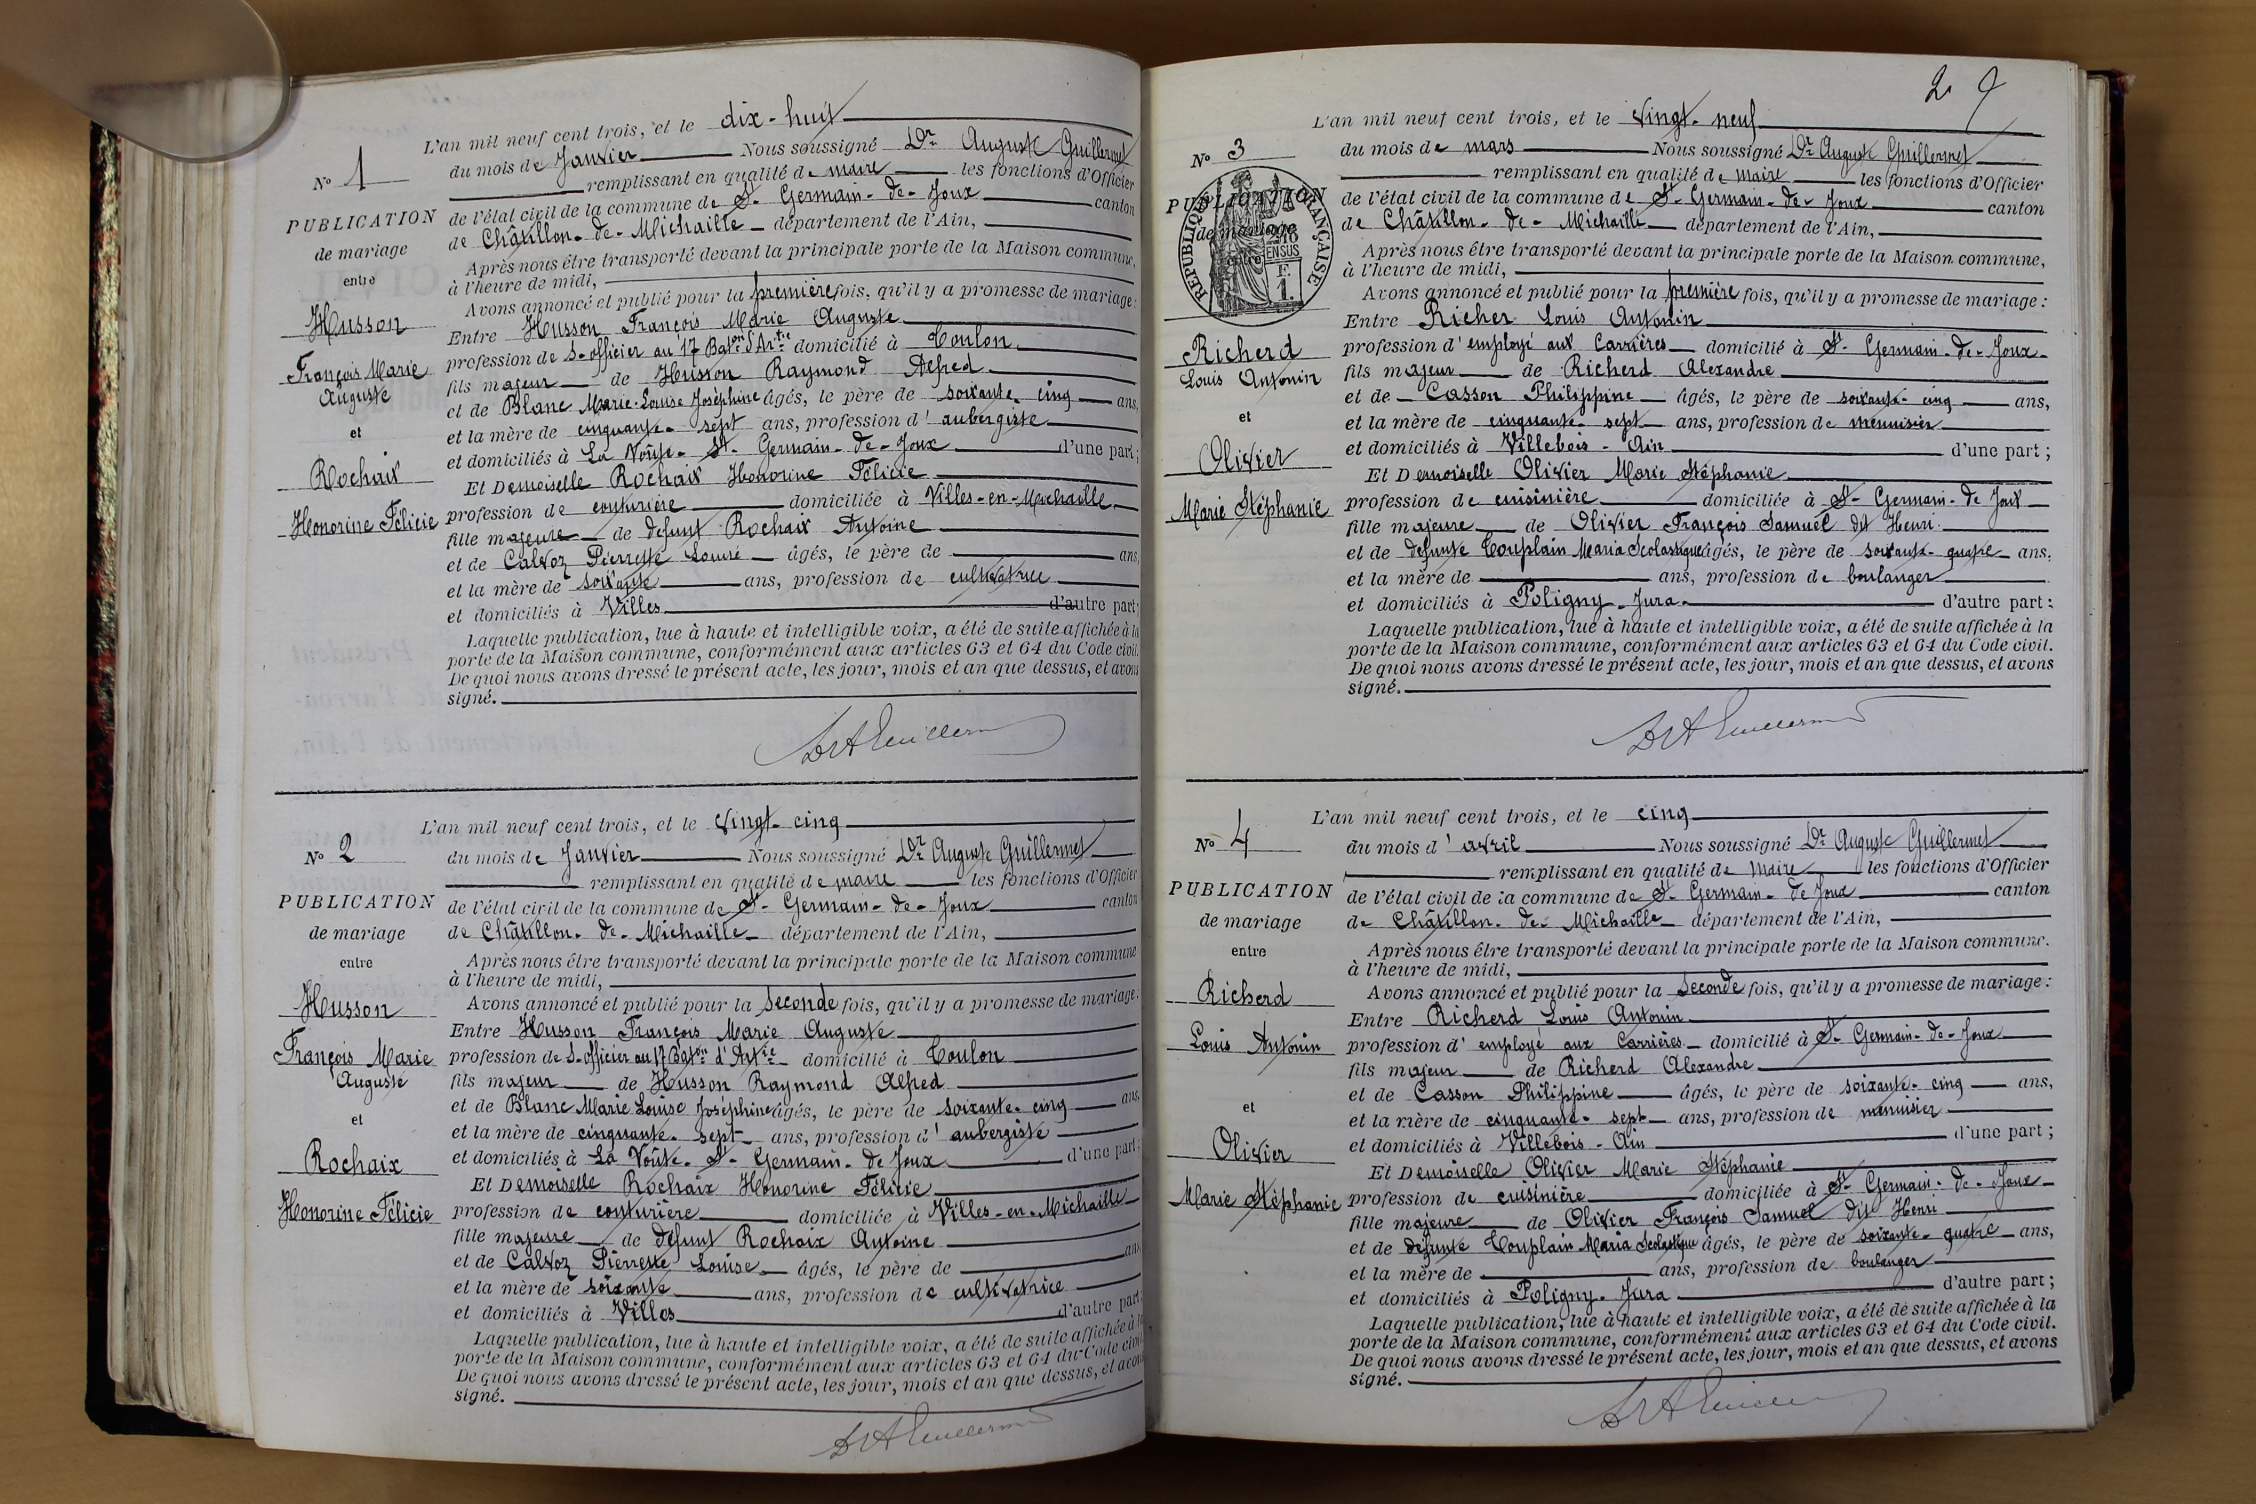 N° 1
PUBLICATION
de mariage
entre
Husson
François Marie
Auguste
et
Rochaix
Honorine Félicie
L'an mil neuf cent trois, et le dix-huit
du mois de Janvier Nous soussigné Dr Auguste Guillermet
remplissant en qualité de maire les fonctions d'Officier
de l'état civil de la commune de St-Germain-de-Joux canton
de Châtillon-de-Michaille département de l'Ain,
Après nous être transporté devant la principale porte de la Maison commune,
à l'heure de midi,
Avons annoncé et publié pour la première fois, qu'il y a promesse de mariage:
Entre Husson François Marie Auguste
profession de S-officier au 17 Baton d'Artie domicilié à Toulon
fils majeur de Husson Raymond Alfred
et de Blanc Marie-Louise Joséphine âgés, le père de soixante-cinq ans,
et la mère de cinquante-sept ans, profession d'aubergiste
et domiciliés à La Voûte-St-Germain-de-Joux d'une part;
Et Demoiselle Rochaix Honorine Félicie
profession de couturière domiciliée à Villes-en-Michaille
fille majeure de défunt Rochaix Antoine
et de Calvoz Pierrette Louise âgés, le père de ans,
et la mère de soixante ans, profession de cultivatrice
et domiciliés à Villes d'autre part;
Laquelle publication, lue à haute et intelligible voix, a été de suite affichée à la
porte de la Maison commune, conformément aux articles 63 et 64 du Code civil.
De quoi nous avons dressé le présent acte, les jour, mois et an que dessus, et avons
signé.
Dr A Guillermet
N° 2
PUBLICATION
de mariage
entre
Husson
François Marie
Auguste
et
Rochaix
Honorine Félicie
L'an mil neuf cent trois, et le vingt-cinq
du mois de Janvier Nous soussigné Dr Auguste Guillermet
remplissant en qualité de maire les fonctions d'Officier
de l'état civil de la commune de St-Germain-de-Joux canton
de Châtillon-de-Michaille département de l'Ain,
Après nous être transporté devant la principale porte de la Maison commune
à l'heure de midi,
Avons annoncé et publié pour la seconde fois, qu'il y a promesse de mariage:
Entre Husson François Marie Auguste
profession de S-officier au 17 Baton d'Artie domicilié à Toulon
fils majeur de Husson Raymond Alfred
et de Blanc Marie Louise Joséphine âgés, le père de soixante-cinq ans,
et la mère de cinquante-sept ans, profession d'aubergiste
et domiciliés à La Voûte-St-Germain-de Joux d'une part;
Et Demoiselle Rochaix Honorine Félicie
profession de couturière domiciliée à Villes-en-Michaille
fille majeure de défunt Rochaix Antoine
et de Calvoz Pierrette Louise âgés, le père de ans,
et la mère de soixante ans, profession de cultivatrice
et domiciliés à Villes d'autre part;
Laquelle publication, lue à haute et intelligible voix, a été de suite affichée à la
porte de la Maison commune, conformément aux articles 63 et 64 du Code civil.
De quoi nous avons dressé le présent acte, les jour, mois et an que dessus, et avons
signé.
Dr A Guillermet
2
N° 3
PUBLICATION
de mariage
entre
RÉPUBLIQUE FRANÇAISE
Richerd
Louis Antonin
et
Olivier
Marie Stéphanie
L'an mil neuf cent trois, et le vingt-neuf
du mois de mars Nous soussigné Dr Auguste Guillermet
remplissant en qualité de maire les fonctions d'Officier
de l'état civil de la commune de St-Germain-de-Joux canton
de Châtillon-de-Michaille département de l'Ain,
Après nous être transporté devant la principale porte de la Maison commune,
à l'heure de midi,
Avons annoncé et publié pour la première fois, qu'il y a promesse de mariage:
Entre Richer Louis Antonin
profession d'employé aux Carrières domicilié à St-Germain-de-Joux
fils majeur de Richerd Alexandre
et de Casson Philippine âgés, le père de soixante-cinq ans,
et la mère de cinquante-sept ans, profession de menuisier
et domiciliés à Villebois-Ain d'une part;
Et Demoiselle Olivier Marie Stéphanie
profession de cuisinière domiciliée à St-Germain-de Joux
fille majeure de Olivier François Samuel dit Henri
et de défunte Couplain Maria Scolastique âgés, le père de soixante-quatre ans,
et la mère de ans, profession de boulanger
et domiciliés à Poligny-Jura d'autre part:
Laquelle publication, lue à haute et intelligible voix, a été de suite affichée à la
porte de la Maison commune, conformément aux articles 63 et 64 du Code civil.
De quoi nous avons dressé le présent acte, les jour, mois et an que dessus, et avons
signé.
Dr A Guillermet
N° 4
PUBLICATION
de mariage
entre
Richerd
Louis Antonin
et
Olivier
Marie Stéphanie
L'an mil neuf cent trois, et le cinq
du mois d'avril Nous soussigné Dr Auguste Guillermet
remplissant en qualité de maire les fonctions d'Officier
de l'état civil de la commune de St-Germain-de Joux canton
de Châtillon-de-Michaille département de l'Ain,
Après nous être transporté devant la principale porte de la Maison commune.
à l'heure de midi,
Avons annoncé et publié pour la seconde fois, qu'il y a promesse de mariage:
Entre Richerd Louis Antonin
profession d'employé aux Carrières domicilié à St-Germain-de-Joux
fils majeur de Richerd Alexandre
et de Casson Philippine âgés, le père de soixante-cinq ans,
et la mère de cinquante-sept ans, profession de menuisier
et domiciliés à Villebois-Ain d'une part;
Et Demoiselle Olivier Marie Stéphanie
profession de cuisinière domiciliée à St-Germain-de-Joux
fille majeure de Olivier François Samuel dit Henri
et de défunte Couplain Maria Scolastique âgés, le père de soixante-quatre ans,
et la mère de ans, profession de boulanger
et domiciliés à Poligny-Jura d'autre part;
Laquelle publication, lue à haute et intelligible voix, a été de suite affichée à la
porte de la Maison commune, conformément aux articles 63 et 64 du Code civil.
De quoi nous avons dressé le présent acte, les jour, mois et an que dessus, et avons
signé.
Dr A Guillermet